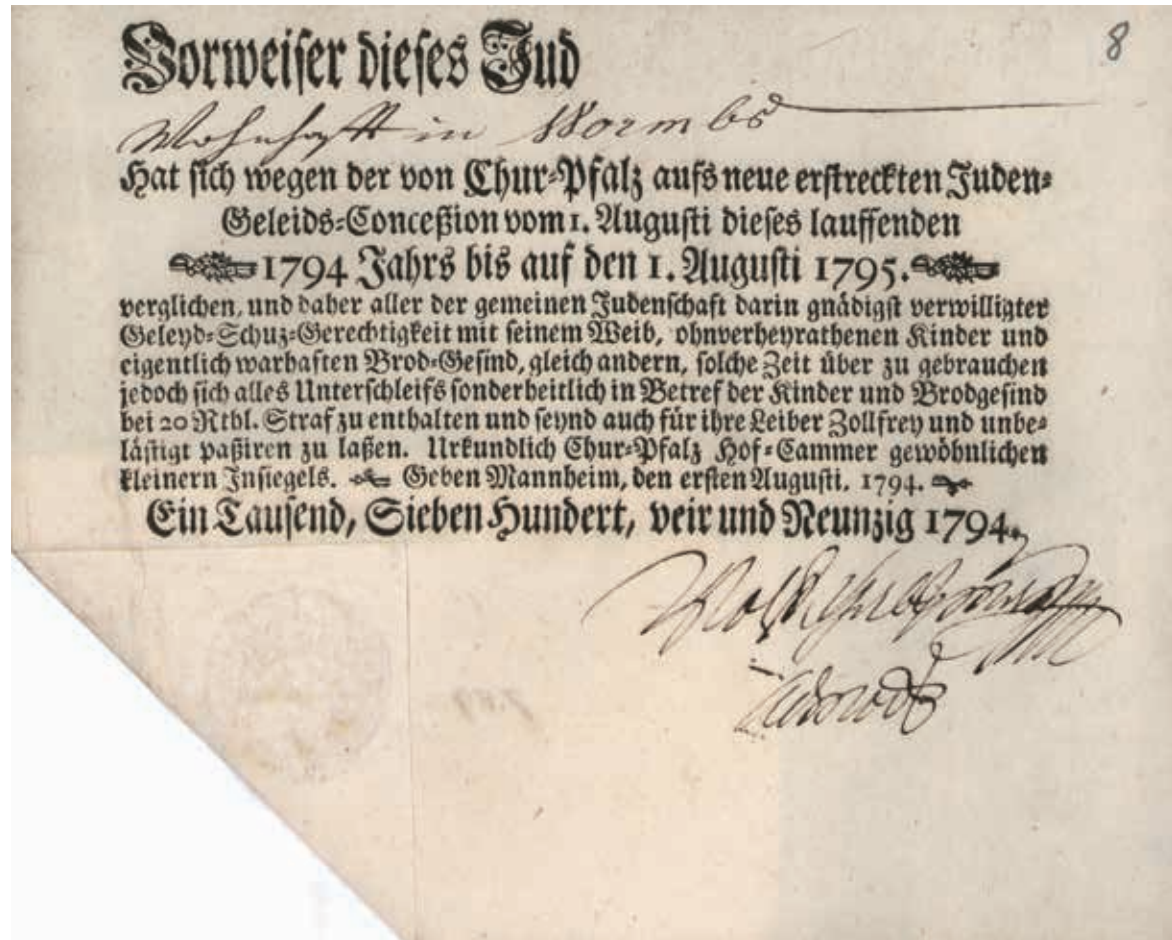 8
Vorweiser dieses Jud
Wohnhafft in Wormbs
Hat sich wegen der von Chur-Pfalz aufs neue erstreckten Juden-
Geleids-Conceßion vom 1. Augusti dieses lauffenden
1794 Jahrs bis auf den 1. Augusti 1795.
verglichen, und daher aller der gemeinen Judenschaft darin gnädigst verwilligter
Geleyd-Schuz-Gerechtigkeit mit seinem Weib, ohnverheyrathenen Kinder und
eigentlich warhaften Brod-Gesind, gleich andern, solche Zeit über zu gebrauchen
jedoch sich alles Unterschleifs sonderheitlich in Betref der Kinder und Brodgesind
bei 20 Rthl. Straf zu enthalten und seynd auch für ihre Leiber Zollfrey und unbe-
lästigt paßiren zu laßen. Urkundlich Chur-Pfalz Hof-Cammer gewöhnlichen
kleinern Insiegels. Geben Mannheim, den ersten Augusti. 1794.
Ein Tausend, Sieben Hundert, veir und Neunzig 1794.